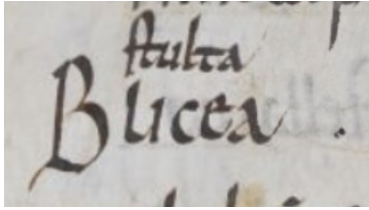 stulta
Blicea .